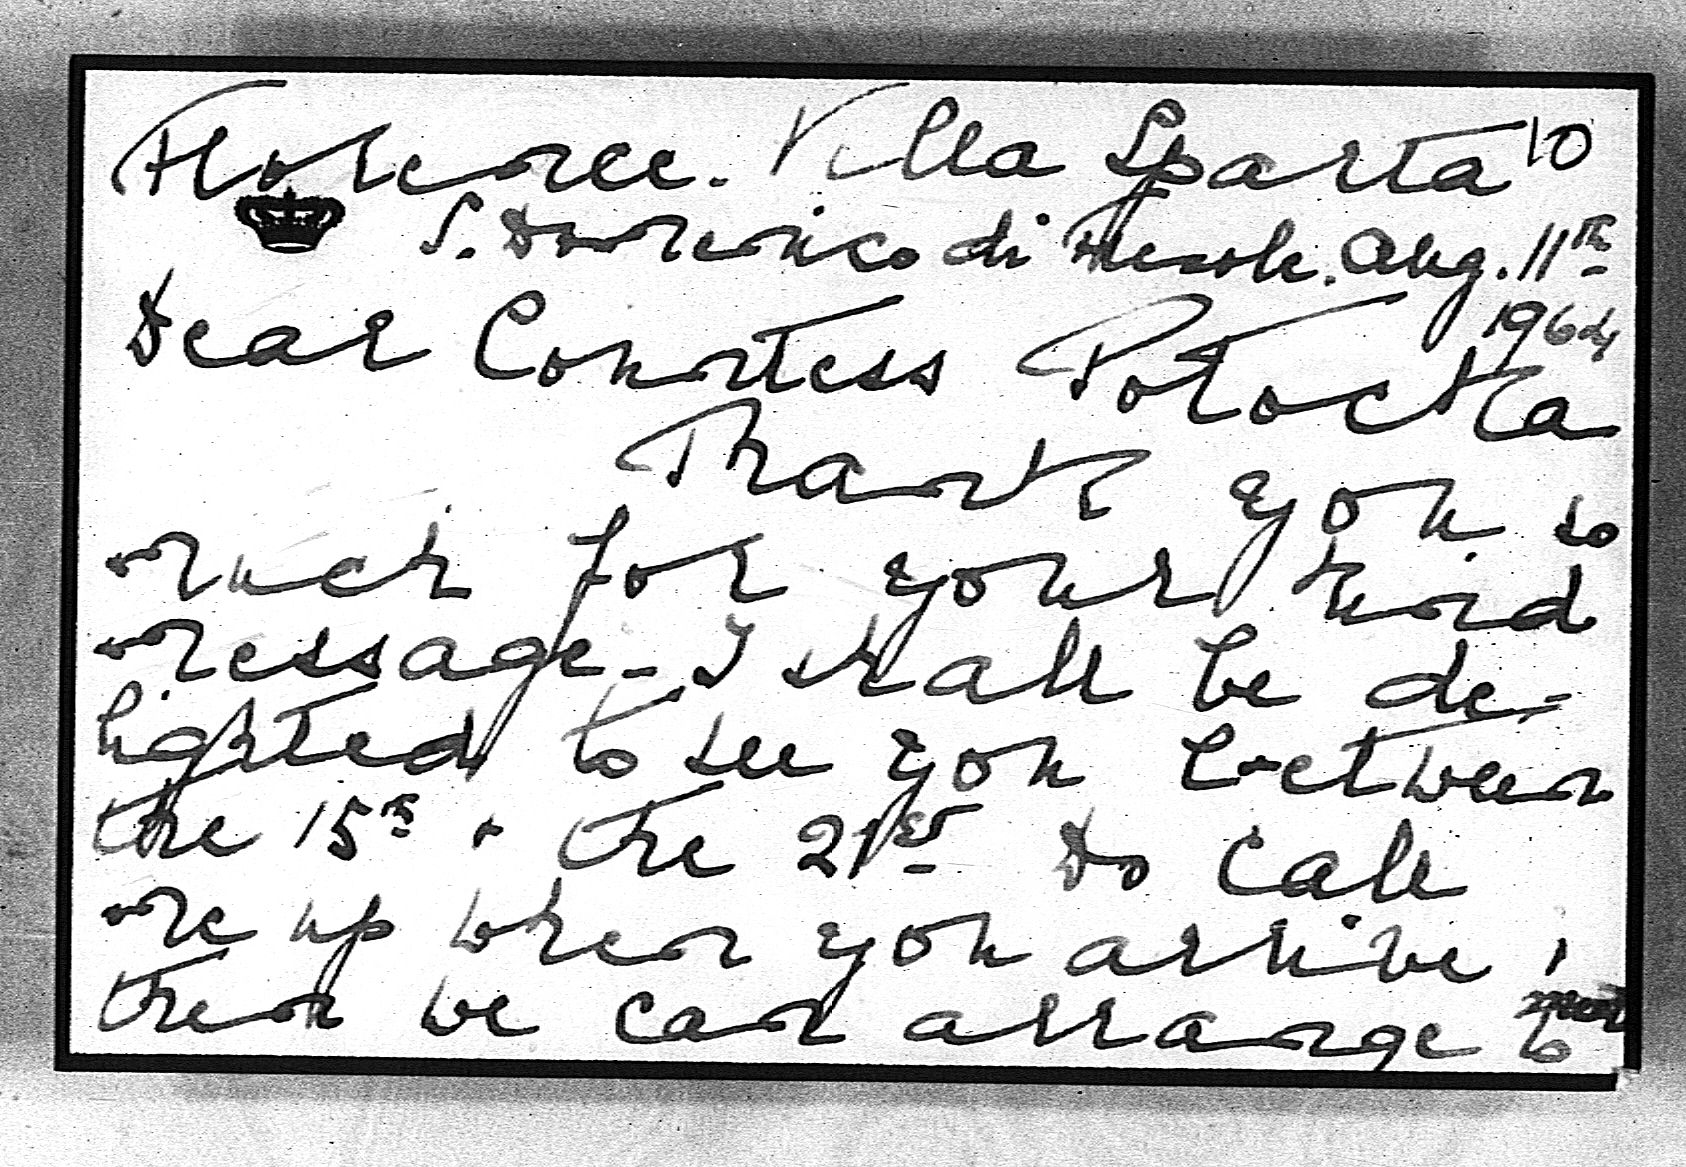 Florence. Villa Sparta 10
S. Domenico di Fiesole. Aug. 11th
1964
Dear Countess Potocka
Thank you so
much for your kind
message - I shall be de-
lighted to see you between
the 15th & the 21st Do call
me up when you arrive,
then we can arrange to
meet